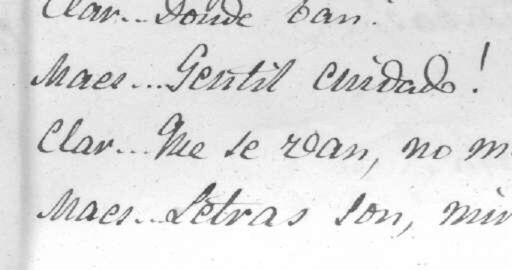 Clar... Donde ban.
Maes... Gentil cuidado!
Clar... Que se van, no m
Maes... Letras son, mir